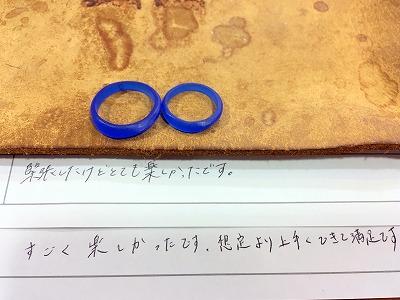 緊張したけどとても楽しかったです。
すごく楽しかったです。想定より上手くできて満足です